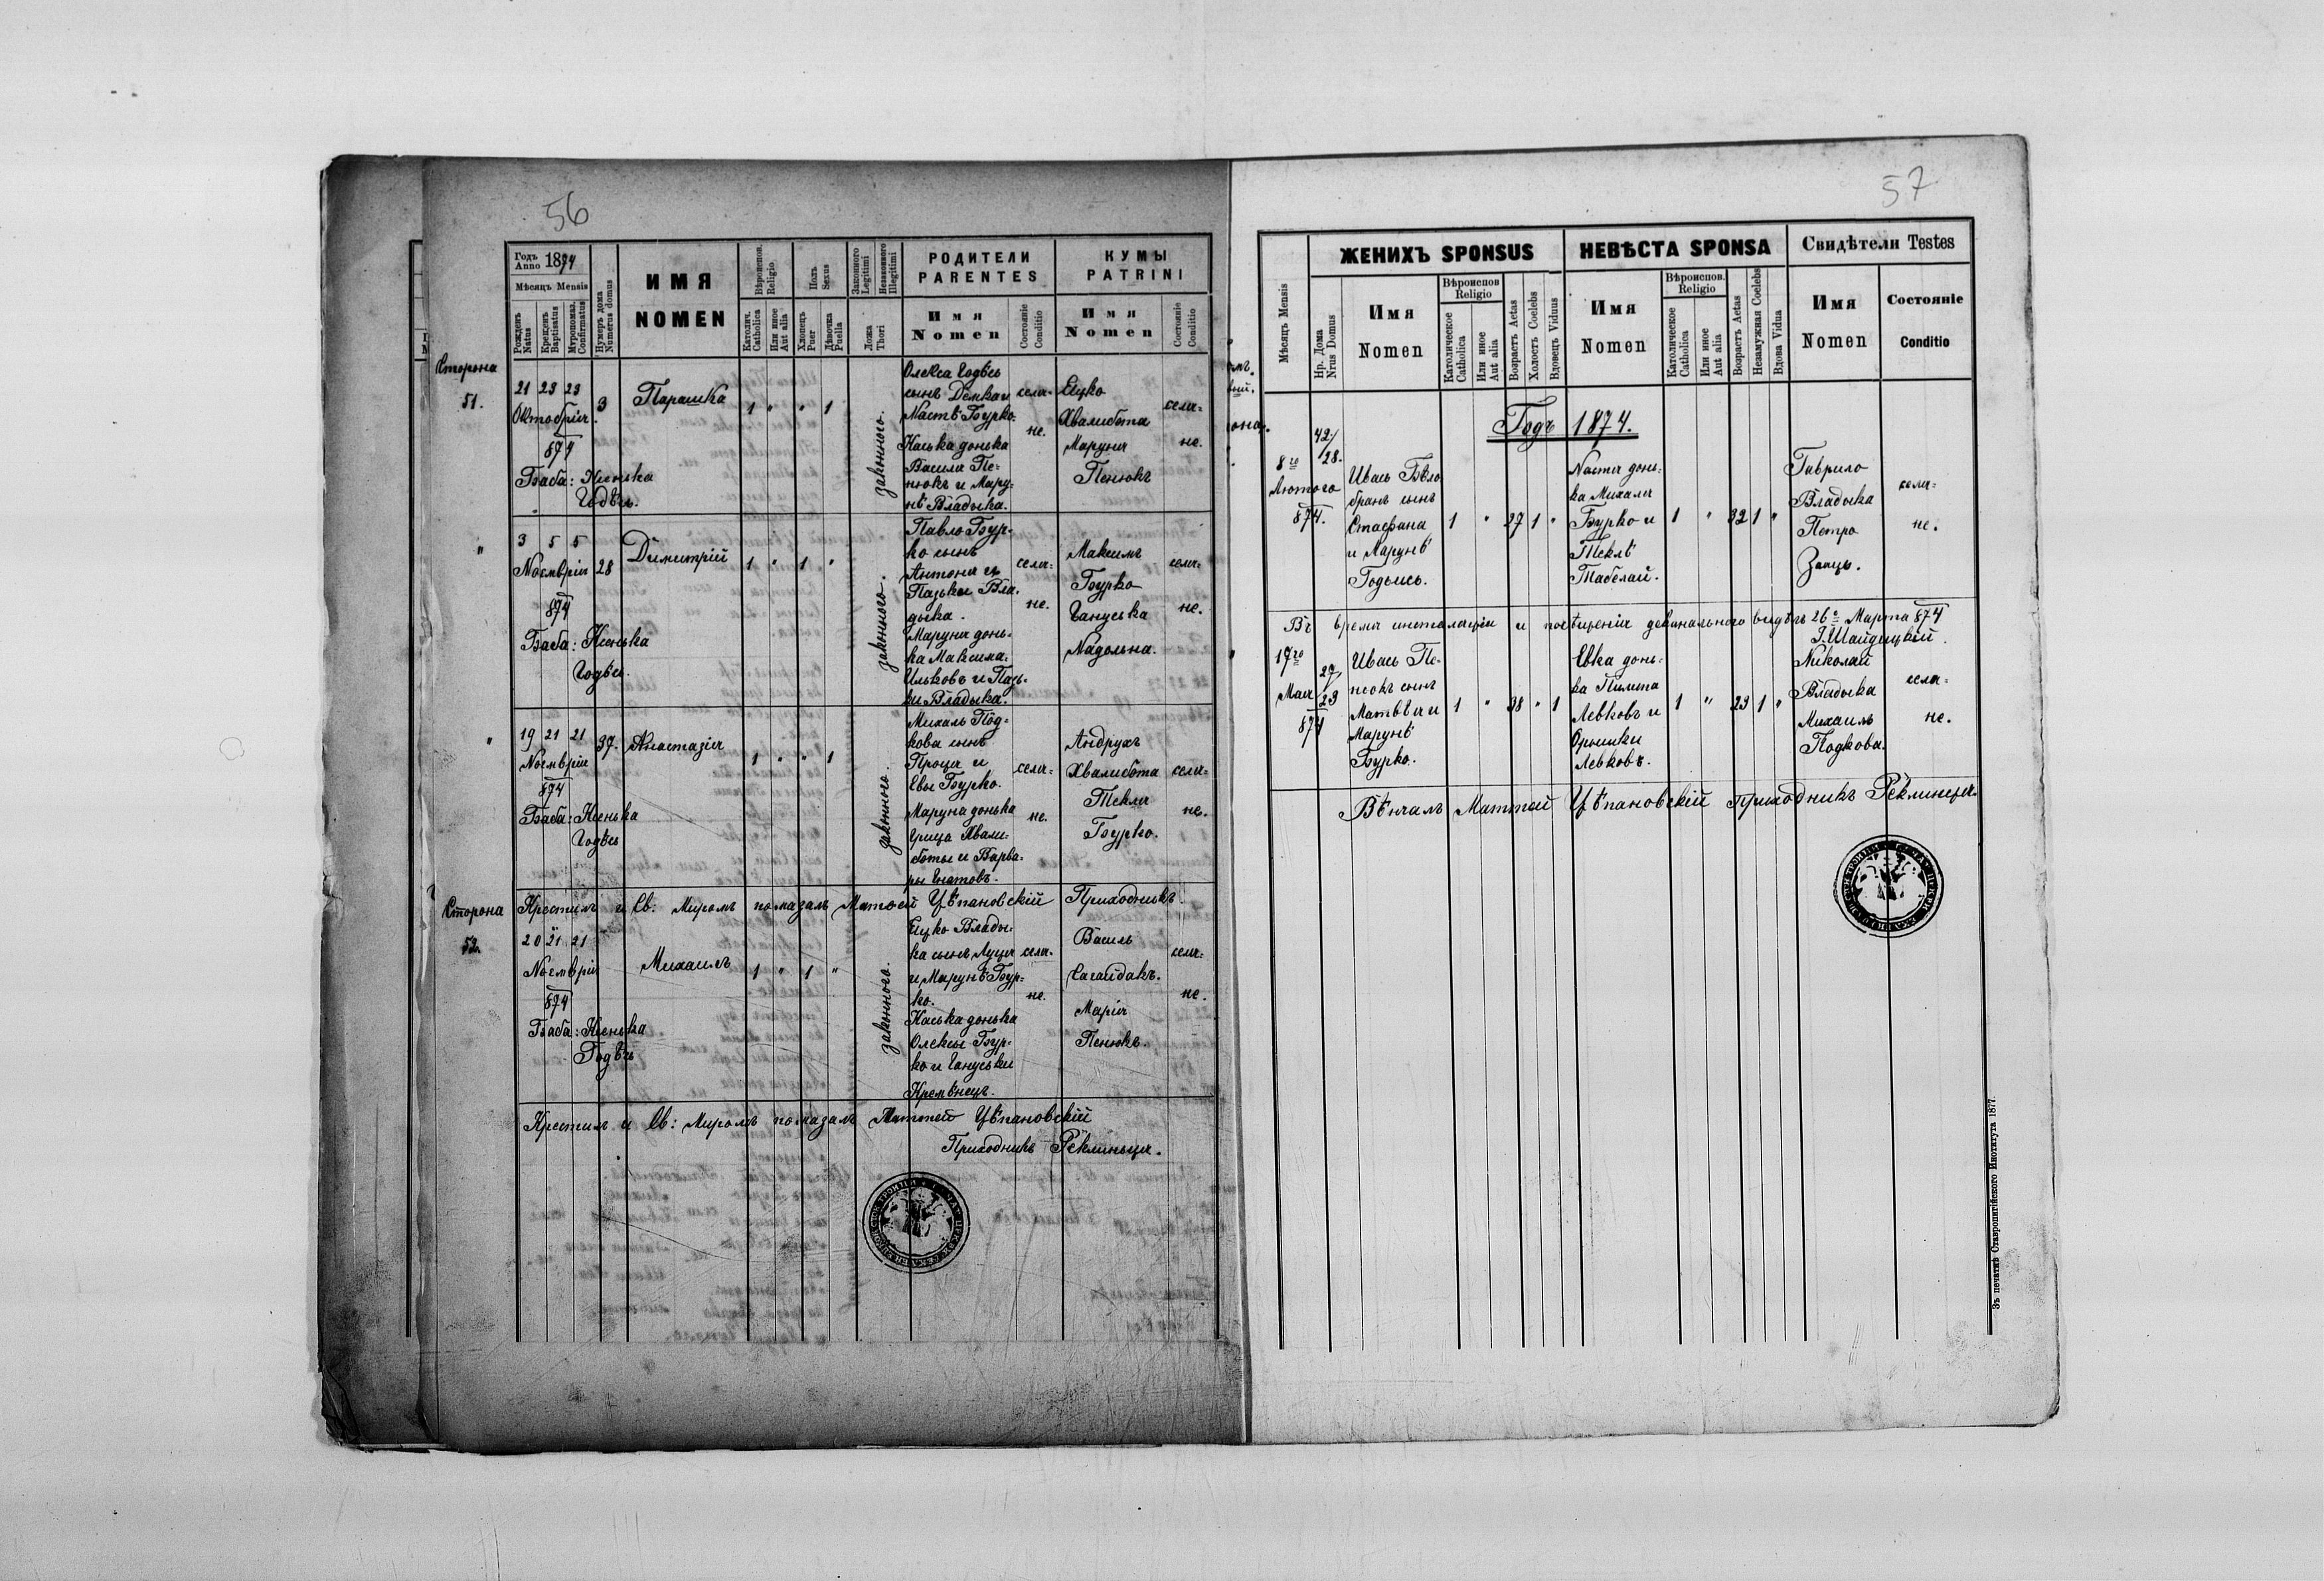 56
Годъ Anno 1874
Мѣсяцъ Mensis
Рожденъ Natus
Крещенъ Baptisatus
Мѵропомаз. Confirmatus
Нумеръ дома Numerus domus
ИМЯ
NOMEN
Вѣроиспов. Religio
Католич. Catholica
Или иное Aut alia
Полъ Sexus
Хлопецъ Puer
Дѣвочка Puella
Законного Legitimi
Незаконного Illegitimi
Ложа Thori
РОДИТЕЛИ
PARENTES
Имя
Nomen
Состояніе Conditio
КУМЫ
PATRINI
Имя
Nomen
Состояніе Conditio
Сторона
51.
21 23 23
Октобрія
874
3
Парашка
1 " " 1
законного.
Олекса Годѣсь
сынъ Демка и
Настѣ Бурко.
Каська донька
Василя Пе-
нюкъ и Мару-
нѣ Владыка.
селя-
не.
Ецко
Хвалибота
Маруня
Пенюкъ
селя-
не.
Баба: Ксенька
Годѣсь.
"
3 5 5
Ноемврія
874
28
Димитрій
1 " 1 "
законного.
Павло Бур-
ко сынъ
Антона и
Пазьки Вла-
дыка.
Маруня донь-
ка Максима
Ильковъ и Пазь-
ки Владыка.
селя-
не.
Максимъ
Бурко
Гануська
Надольна.
селя-
не.
Баба: Ксенька
Годѣсь.
"
19 21 21
Ноемврія
874
37.
Анастазія
1 " " 1
законного.
Михаль Под-
кова сынъ
Проця и
Евы Бурко.
Маруня донька
Грица Хвали-
боты и Варва-
ры Гнатовъ.
селя-
не.
Андрухъ
Хвалибота
Текля
Бурко.
селя-
не.
Баба: Ксенька
Годѣсь
Сторона
52.
Крестилъ и Св: Миромъ помазалъ Маттей Цѣпановскій Приходникъ.
20 21 21
Ноемврія
874
Михаилъ
1 " 1 "
законного.
Ецко Влады-
ка сынъ Луця
и Марунѣ Бур-
ко.
Каська донька
Олексы Бур-
ко и Гануськи
Кремѣнецъ.
селя-
не.
Василь
Сагайдакъ.
Марія
Пенюкъ.
селя-
не.
Баба: Ксенька
Годѣсь
Крестилъ и Св: Миромъ помазалъ Маттей Цѣпановскій
Приходникъ Реклиньця.
57
Мѣсяцъ Mensis
Нр. Дома Nrus Domus
ЖЕНИХЪ SPONSUS
Имя
Nomen
Вѣроиспов Religio
Католическое Catholica
Или иное Aut alia
Возрастъ Aetas
Холостъ Coelebs
Вдовецъ Viduus
НЕВѢСТА SPONSA
Имя
Nomen
Вѣроиспов. Religio
Католическое Catholica
Или иное Aut alia
Возрастъ Aetas
Незамужная Coelebs
Вдова Vidua
Свидѣтели Testes
Имя
Nomen
Состояніе
Conditio
Годъ 1874.
8го
Лютого
874.
42/
28.
Ивась Бѣло
бранъ сынъ
Стефана
и Марунѣ
Годысь.
1 " 27 1 "
Настя донь-
ка Михаля
Бурко и
Теклѣ
Табелай.
1 " 32 1 "
Гаврило
Владыка
Петро
Заяць.
селя-
не.
Въ время инсталяціи и посѣщенія деканального видѣлъ 26о Марта 874
І. Шайдицкій.
19го
Мая
874
27/
23
Ивась Пе-
нюкъ сынъ
Матвѣя и
Марунѣ
Бурко.
1 " 38 " 1
Евка донь-
ка Пилипа
Левковъ и
Орышки
Левковъ.
1 " 23 1 "
Николай
Владыка
Михаилъ
Подкова.
селя-
не.
Вѣнчалъ Маттей Цѣпановскій приходникъ Реклинця.
Зъ печатнѣ Ставропигійского Института 1877.